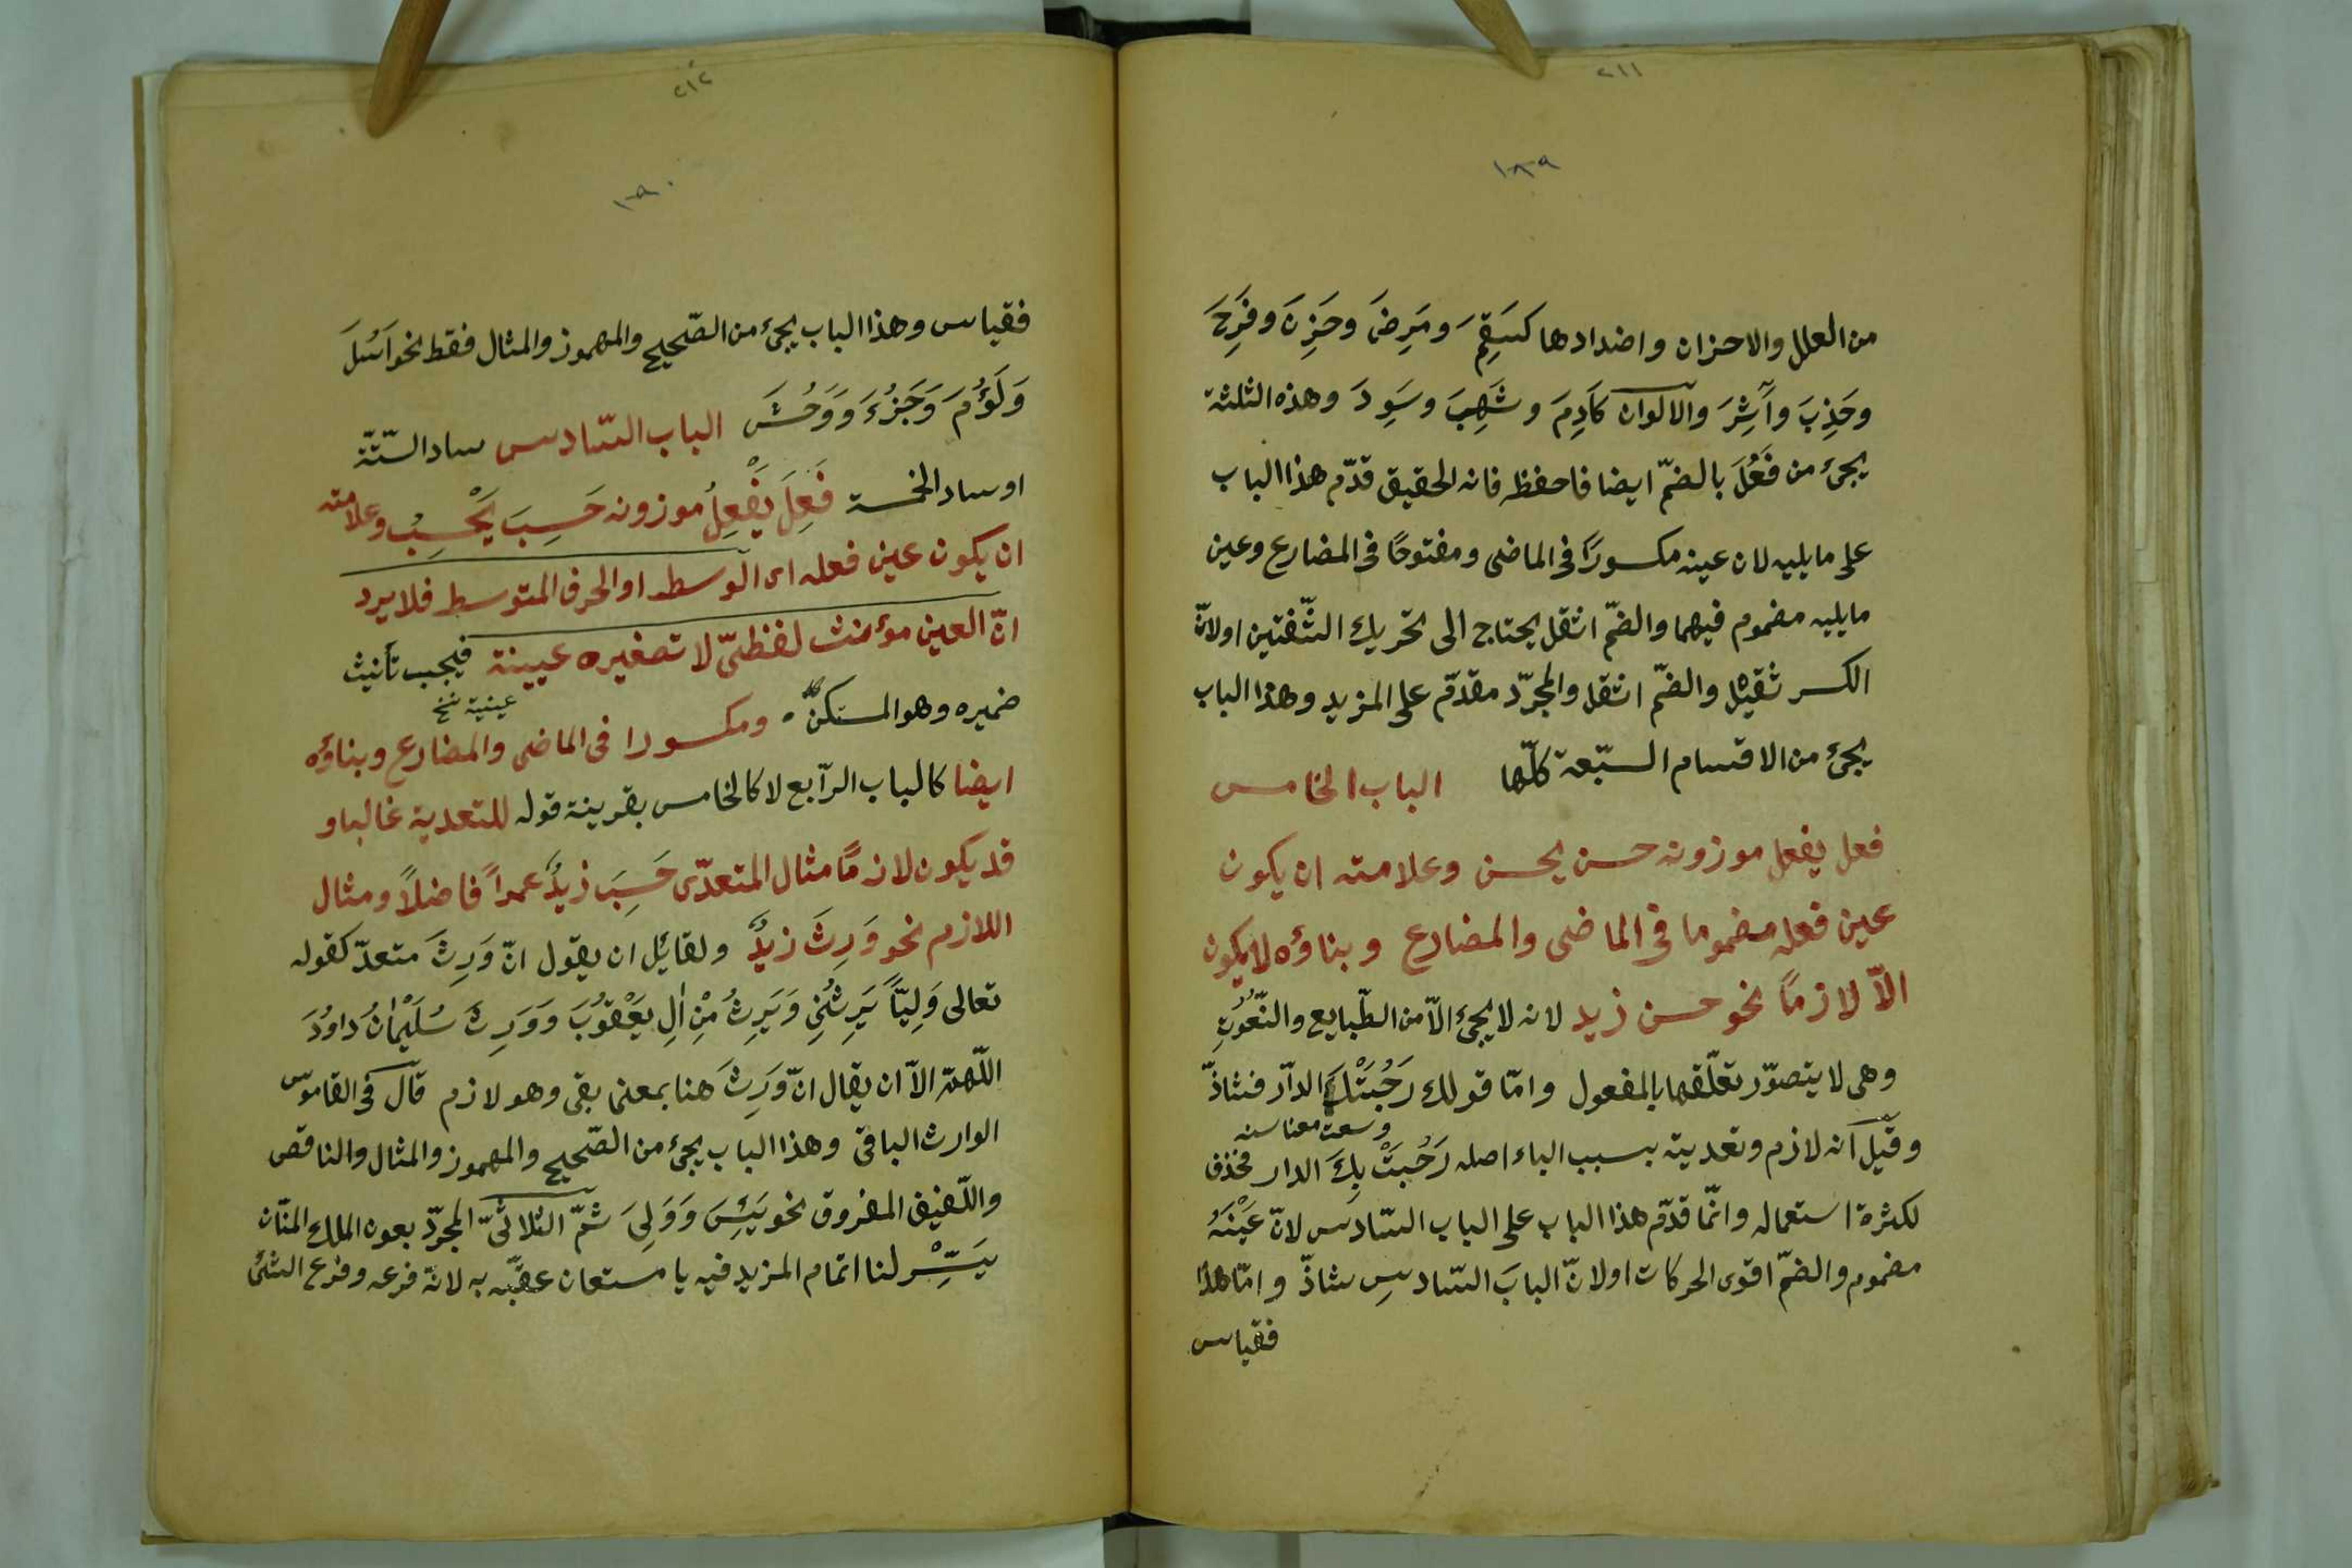 ٢١١
١٨٩
من العلل والاحزان واضدادها كسَقِمَ ومَرِضَ وحَزِنَ وفَرِحَ
وجَذِبَ وآَشِرَ والالوان كَاَدِمَ وشَهِبَ وسَوِدَ وهذه الثلثة
يجئ من فَعُلَ بالضمّ ايضا فاحفظه فانه الحقيق قدّم هذا الباب
على ما يليه لان عينه مكسورًا فى الماضى ومفتوحًا فى المضارع وعين
ما يليه مضموم فيهما والضمّ اثقل يحتاج الى تحريك الشّفتين اولانّ
الكسر ثقيل والضمّ اثقل والمجرّد مقدّم على المزيد وهذا الباب
يجئ من الاقسام السّبعة كلّها الباب الخامس
فعل يفعل موزونه حسن يحسن وعلامته ان يكون
عين فعله مضموما فى الماضى والمضارع وبناؤه لا يكون
الاّ لازمًا نحو حسن زيد لانه لا يجئ الاّ من الطّبايع والنّعُوتِ
وهى لا يتصوّر تعلّقها بالمفعول وامّا قولك رَحُبَتْكَ الدّار فشاذّ
وسعت معناسنه
وقيل انه لازم وتعديته بسبب الباء اصله رَحُبَتْ بِكَ الدار فحذف
لكثرة استعماله وانّما قدّم هذا الباب على الباب السّادس لانّ عَيْنَهُ
مضموم والضمّ اقوى الحركات اولانّ البابَ السّادسِ شاذّ وامّا هذا
فقياس
٢١٢
١٩٠
فقياس وهذا الباب يجئ من الصّحيح والمهموز والمثال فقط نحو اَسُلَ
وَلَؤُمَ وَجَزُءَ وَوَحُشَ الباب السّادس ساد السّتّة
او ساد الخمسة فَعِلَ يَفْعِلُ موزونه حَسِبَ يَحْسِبُ وعلامته
ان يكون عين فعله اى الوسط او الحرف المتوسط فلا يرد
انّ العين مؤنث لفظىّ لا تصغيره عيينة فيجب تأنيث
عينية نخ
ضميره وهو المستكنّ ومكسورا فى الماضى والمضارع وبناؤه
ايضا كالباب الرّابع لا كالخامس بقرينة قوله للمتعدية غالبا و
قد يكون لازمًا مثال المتعدّى حَسِبَ زيدٌ عمراً فاضلاً ومثال
اللازم نحو وَرِثَ زيدٌ ولقائل ان يقول انّ وَرِثَ متعدّ كقوله
تعالى وَلِيّاً يَرِثُنِى وَيَرِثُ مِنْ اٰلِ يَعْقُوبَ وَوَرِثَ سُلَيْمٰانُ دَاوُدَ
اللّهمّ الاّ ان يقال انّ وَرِثَ هنا بمعنى بقى وهو لازم قال فى القاموس
الوارث الباقى وهذا الباب يجئ من الصّحيح والمهموز والمثال والناقص
واللّفيف المفروق نحو يَئِسَ وَوَلِىَ ثمّ الثلاثىّ المجرّد بعون الملك المنّان
يَسِّرْ لنا اتمام المزيد فيه يا مستعان عقّبه به لانّه فرعه وفرع الشئ